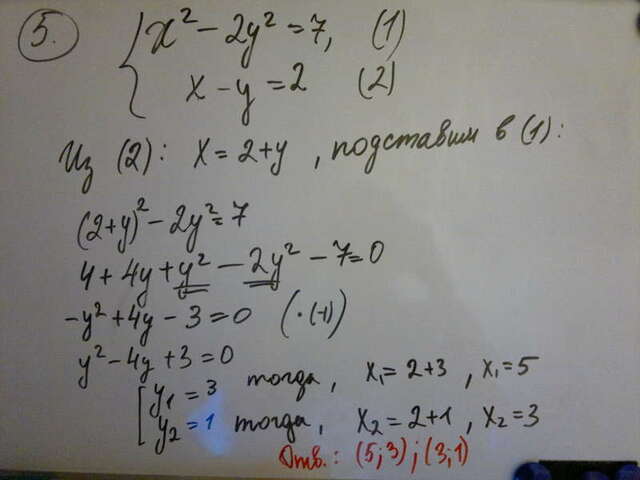 5. { x² - 2y² = 7, (1)
x - y = 2 (2)
Из (2): x = 2+y, подставим в (1):
(2+y)² - 2y² = 7
4 + 4y + y² - 2y² - 7 = 0
-y² + 4y - 3 = 0 (·(-1))
y² - 4y + 3 = 0
[ y₁ = 3 тогда, x₁ = 2+3, x₁ = 5
y₂ = 1 тогда, x₂ = 2+1, x₂ = 3
Отв.: (5;3); (3;1)